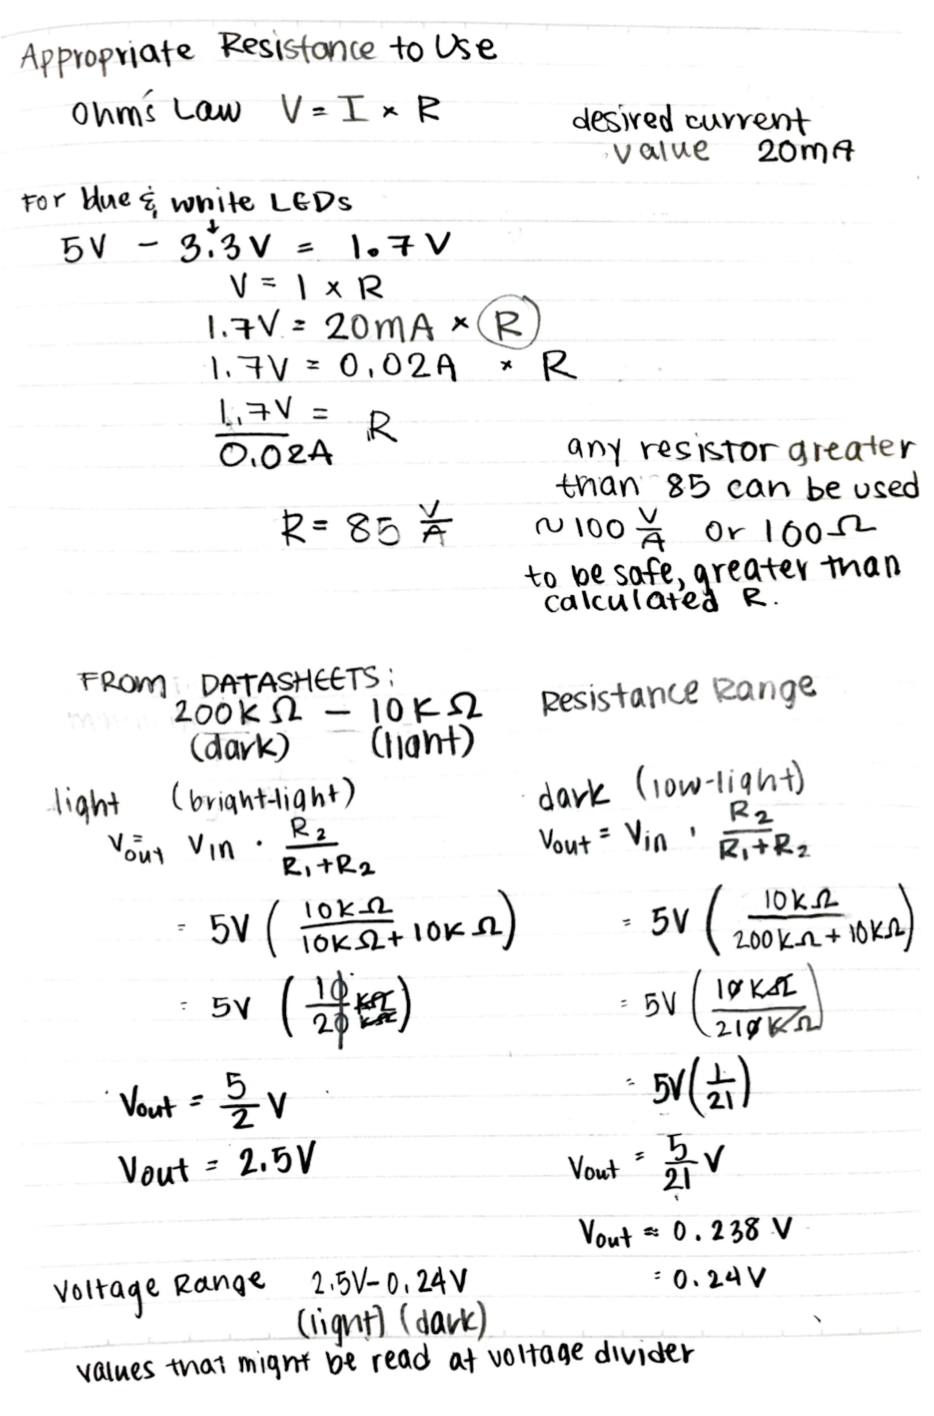 Appropriate Resistance to Use
Ohm's Law V = I × R
desired current
value 20mA
For blue & white LEDs
5V - 3.3V = 1.7V
V = I × R
1.7V = 20mA × R
1.7V = 0.02A × R
1.7V = R
0.02A
R = 85 V/A
any resistor greater
than 85 can be used
~100 V/A or 100Ω
to be safe, greater than
calculated R.
FROM DATASHEETS:
200KΩ - 10KΩ Resistance Range
(dark) (light)
light (bright-light)
Vout = Vin · R2/(R1+R2)
= 5V (10KΩ/(10KΩ + 10KΩ))
= 5V (10/20 KΩ/KΩ)
Vout = 5/2 V
Vout = 2.5V
dark (low-light)
Vout = Vin · R2/(R1+R2)
= 5V (10KΩ/(200KΩ + 10KΩ))
= 5V (10KΩ/210KΩ)
= 5V (1/21)
Vout = 5/21 V
Vout ≈ 0.238 V
= 0.24V
Voltage Range 2.5V-0.24V
(light) (dark)
values that might be read at voltage divider